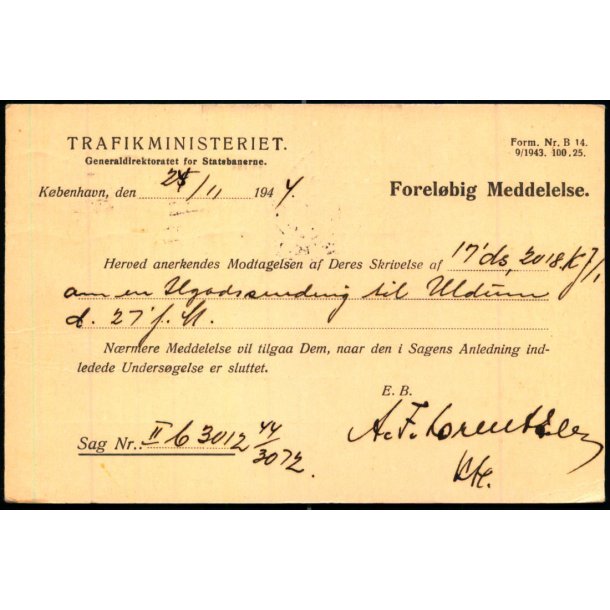 TRAFIKMINISTERIET.
Generaldirektoratet for Statsbanerne.
Form. Nr. B 14.
9/1943. 100.25.
København, den 28/11 1944.
Foreløbig Meddelelse.
Herved anerkendes Modtagelsen af Deres Skrivelse af 17' ds, 2018
om en Ilgodssending til Uldum
d. 27' f. M.
Nærmere Meddelelse vil tilgaa Dem, naar den i Sagens Anledning ind-
ledede Undersøgelse er sluttet.
E. B.
Sag Nr.: II b 3012 44/3072.
A. F. Lorentzen